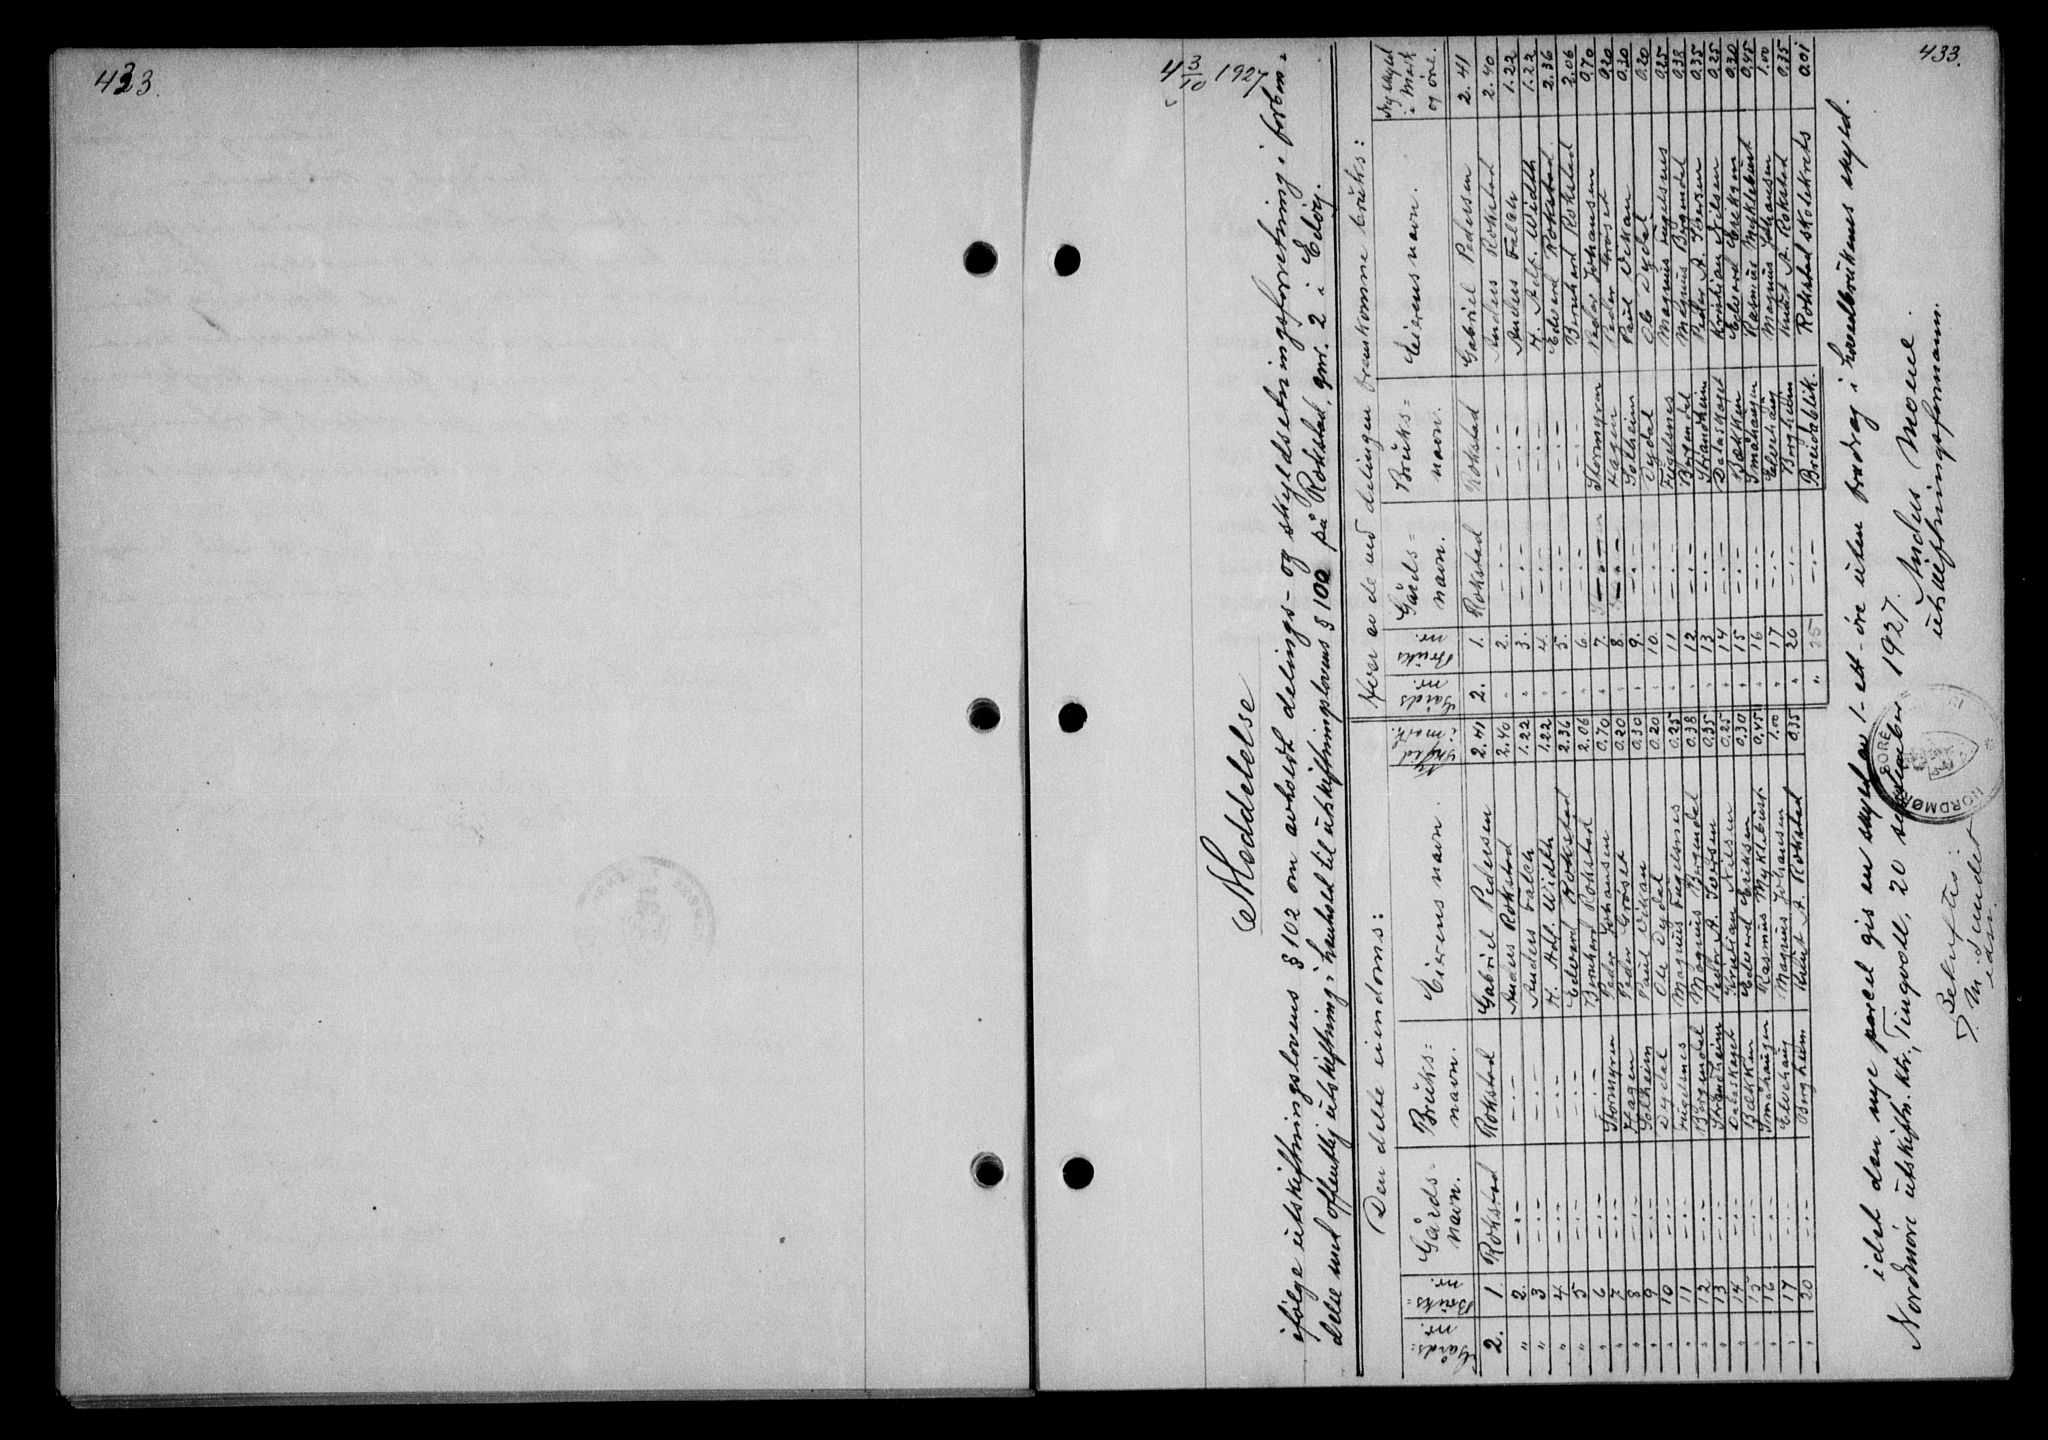 433
433.
4 3/10 1927
Meddelelse
ifølge utskiftningslovens § 102 om avholdt delings- og skyldsetningsforretning i forbin-
delse med offentlig utskiftning i henhold til utskiftningslovens § 100 på Rokstad, gnr. 2 i Edøy.
Den delte eiendoms:
Gårds= nr. Bruks= nr. Gårds= navn. Bruks= navn. Eierens navn. Ny skyld i mark.
2. 1. Rokstad Rokstad Gabriel Pedersen 2.41
" 2. -.- -.- Anders Rokstad 2.40
" 3 -.- -.- Anders Falch 1.22
" 4. -.- -.- H. Adl. Width 1.22
" 5 -.- -.- Edvard Rokstad 2.36
" 6 -.- -.- Bernhard Rokstad 2.06
" 7 -.- Stormyren Peder Johansen 0.70
" 8 -.- Hagen Peder Groset 0.20
" 9 -.- Solheim Paul Vikan 0.30
" 10 -.- Dydal Ole Dydal 0.20
" 11 -.- Fuglenes Magnus Fuglsnes 0.25
" 12 -.- Bergendal Magnus Bergendal 0.38
" 13 -.- Strandheim Peder A. Iversen 0.35
" 14 -.- Dalaskaget Kristian Nilsen 0.25
" 15 -.- Bækken Edvard Eriksen 0.30
" 16 -.- Småhaugen Rasmus Myklebust 0.45
" 17 -.- Elvehaug Magnus Johansen 1.00
" 20 -.- Borgheim Knut A. Rokstad 0.35
Hver av de ved delingen fremkomne bruks:
Gårds nr. Bruks nr. Gårds= navn. Bruks= navn. Eierens navn. Ny skyld i mark og øre.
2. 1. Rokstad Rokstad Gabriel Pedersen 2.41
" 2. -.- -.- Anders Rokstad 2.40
" 3. -.- -.- Anders Falch 1.22
" 4. -.- -.- H. Adl. Width 1.22
" 5. -.- -.- Edvard Rokstad 2.36
" 6. -.- -.- Bernhard Rokstad 2.06
" 7. -.- Stormyren Peder Johansen 0.70
" 8. -.- Hagen Peder Groset 0.20
" 9. -.- Solheim Paul Vikan 0.30
" 10. -.- Dydal Ole Dydal 0.20
" 11 -.- Fuglenes Magnus Fuglsnes 0.25
" 12 -.- Bergendal Magnus Bergendal 0.38
" 13 -.- Strandheim Peder A. Iversen 0.35
" 14 -.- Dalaskaget Kristian Nilsen 0.25
" 15 -.- Bækken Edvard Eriksen 0.30
" 16 -.- Småhaugen Rasmus Myklebust 0.45
" 17 -.- Elvehaug Magnus Johansen 1.00
" 20 -.- Borgheim Knut A. Rokstad 0.35
" 25 -.- Breidablik. Rokstad skolekrets 0.01
idet den nye parcel gis en skyld av 1 - ett - øre uten fradrag i hovedbrukenes skyld.
Nordmøre utskiftn. ktr., Tingvoll, 20 september 1927. Anders Moen.
utskiftningsformann.
Bekreftes:
NORDMØRE SORE